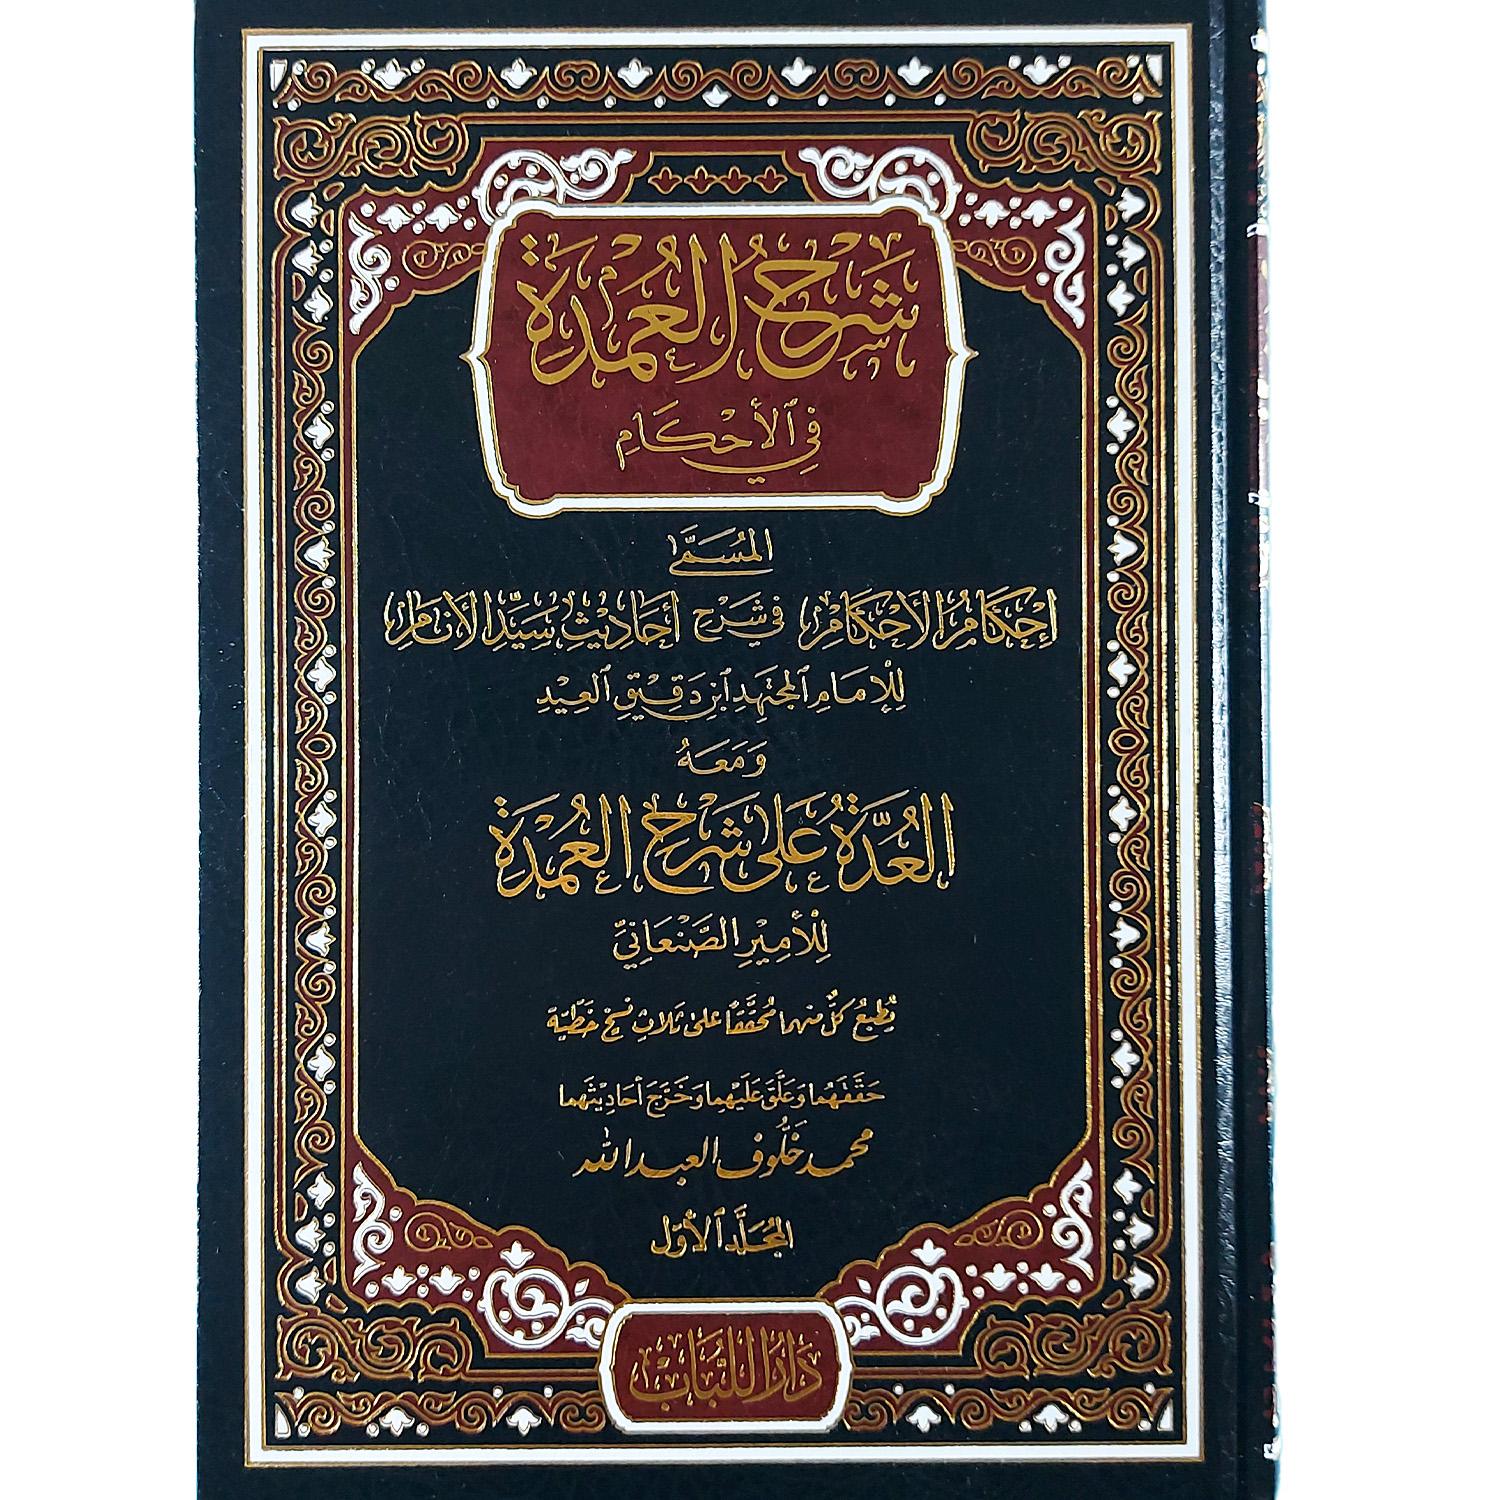 شَرْحُ العُمْدَةِ
فِي الأَحْكَامِ
المُسَمَّى
إِحْكَامُ الأَحْكَامِ فِي شَرْحِ أَحَادِيْثِ سَيِّدِ الأَنَامِ
لِلْإِمَامِ المُجْتَهِدِ ابْنِ دَقِيْقِ العِيْدِ
وَمَعَهُ
العُدَّةُ عَلَى شَرْحِ العُمْدَةِ
لِلْأَمِيْرِ الصَّنْعَانِيِّ
يُطبعُ كلٌّ منهما مُحقَّقًا على ثلاثِ نُسخٍ خطّيّة
حَقَّقَهُما وَعَلَّقَ عَلَيْهِما وَخَرَّجَ أحَادِيْثَهما
محمد خَلُّوف العبد الله
المُجَلَّد الأوّل
دَارُ اللُّبَاب